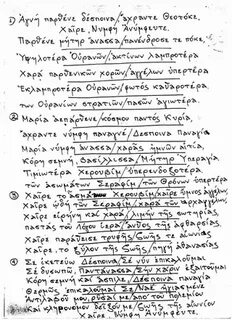 1) Ἁγνή παρθένε δέσποινα/ἄχραντε Θεοτόκε,
Χαῖρε, Νύμφη Ἀνύμφευτε.
Παρθένε μήτηρ ἄνασσα/πανένδροσέ τε πόκε,
Ὑψηλοτέρα Οὐρανῶν/ἀκτίνων λαμπροτέρα
Χαρά παρθενικῶν χορῶν/ἀγγέλων ὑπερτέρα
Ἐκλαμπροτέρα Οὐρανῶν/φωτός καθαροτέρα,
των Οὐρανίων στρατιῶν/πασῶν ἁγιωτέρα
2) Μαρία ἀειπάρθενε/κόσμου παντός Κυρία,
ἄχραντε νύμφη πάναγνε/Δέσποινα Παναγία
Μαρία νύμφη ἄνασσα/χαρᾶς ἡμῶν αἰτία,
Κόρη σεμνή, βασίλισσα/Μήτηρ Ὑπεραγία
Τιμιωτέρα Χερουβίμ/ὑπερενδοξοτέρα
τῶν ἀσωμάτων Σεραφίμ/τῶν Θρόνων ὑπερτέρα
3) Χαῖρε τό ἆσμα Χερουβίμ/χαῖρε ὕμνος ἀγγέλων,
Χαῖρε ὠδή τῶν Σεραφίμ/χαρά τῶν ἀρχαγγέλων,
Χαῖρε εἰρήνη καί χαρά/λιμήν τῆς σωτηρίας,
παστάς τοῦ Λόγου ἱερά/ἄνθος τῆς ἀφθαρσίας
Χαῖρε παράδεισε τρυφῆς/ζωῆς τε αἰωνίας,
Χαῖρε, τό ξύλον τῆς ζωῆς/πηγή ἀθανασίας
4) Σέ ἱκετεύω Δέσποινα/Σέ νῦν ἐπικαλοῦμαι
Σέ δυσωπῶ, Παντάνασσα/Σήν χάριν ἐξαιτοῦμαι
Κόρη σεμνή καί ἄσπιλε/Δέσποινα Παναγία
Θερμῶς ἐπικαλοῦμαί Σε/Ναέ ἡγιασμένε
Ἀντιλαβοῦ μου, ρῦσαί με/ἀπό τοῦ πολεμίου
Καί κληρονόμον δεῖξόν με/ζωῆς τῆς αἰωνίου
Χαῖρε, Νύμφη Ἀνύμφευτε.